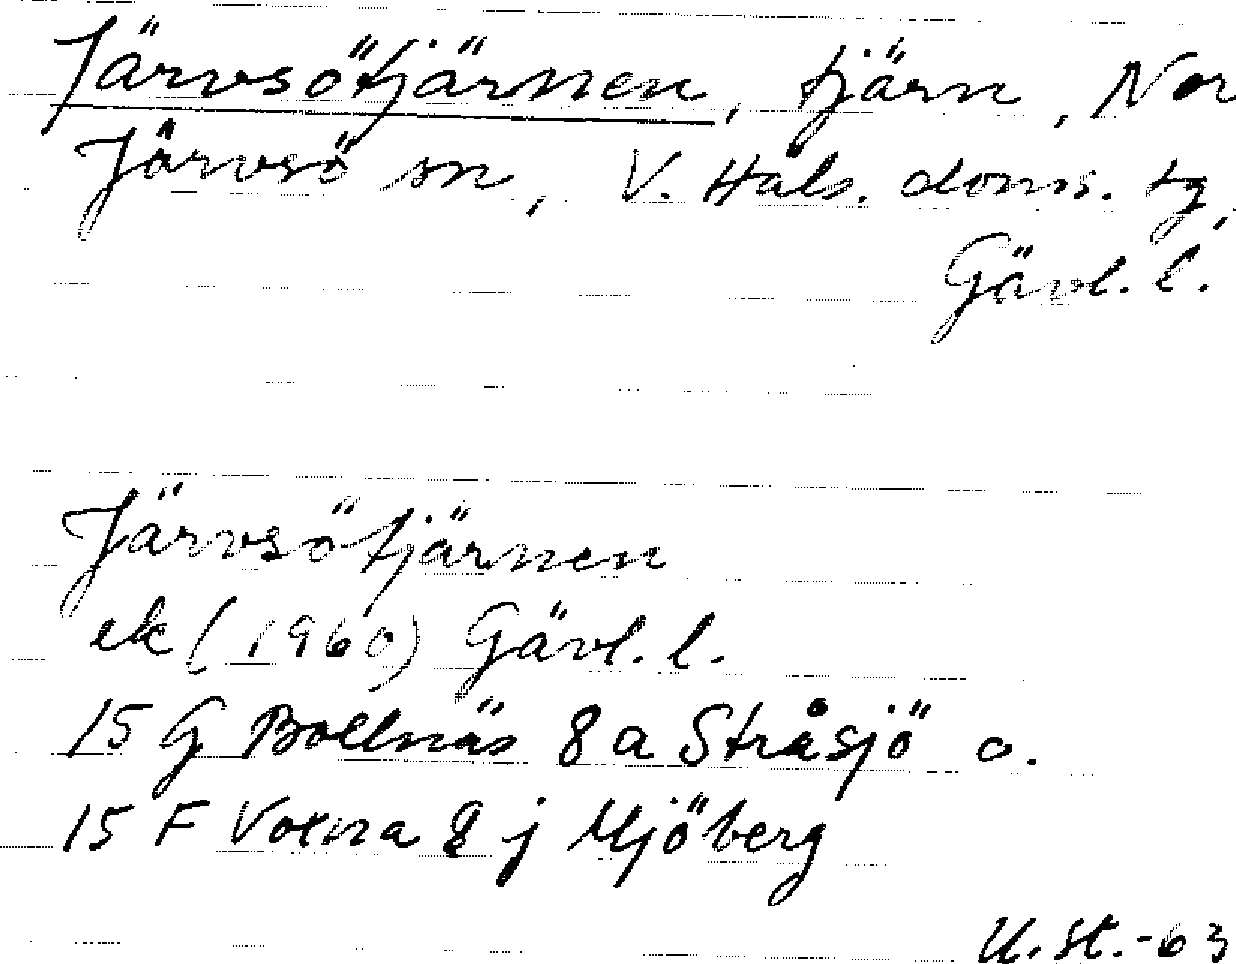 Järvsötjärnen, tjärn, Nor
Järvsö sn, V. Häls. doms. tg,
Gävl. l.
Järvsötjärnen
ek (1960) Gävl. l.
15 G Bollnäs 8 a Stråsjö o.
15 F Voxna 8 j Mjöberg
U. St. -63